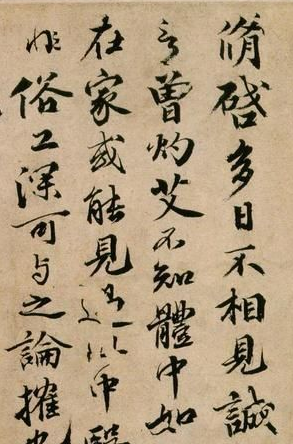 脩啓多日不相見誠
言曾灼艾不知體中如
在家或能見過此中醫
非俗工深可与之論搉